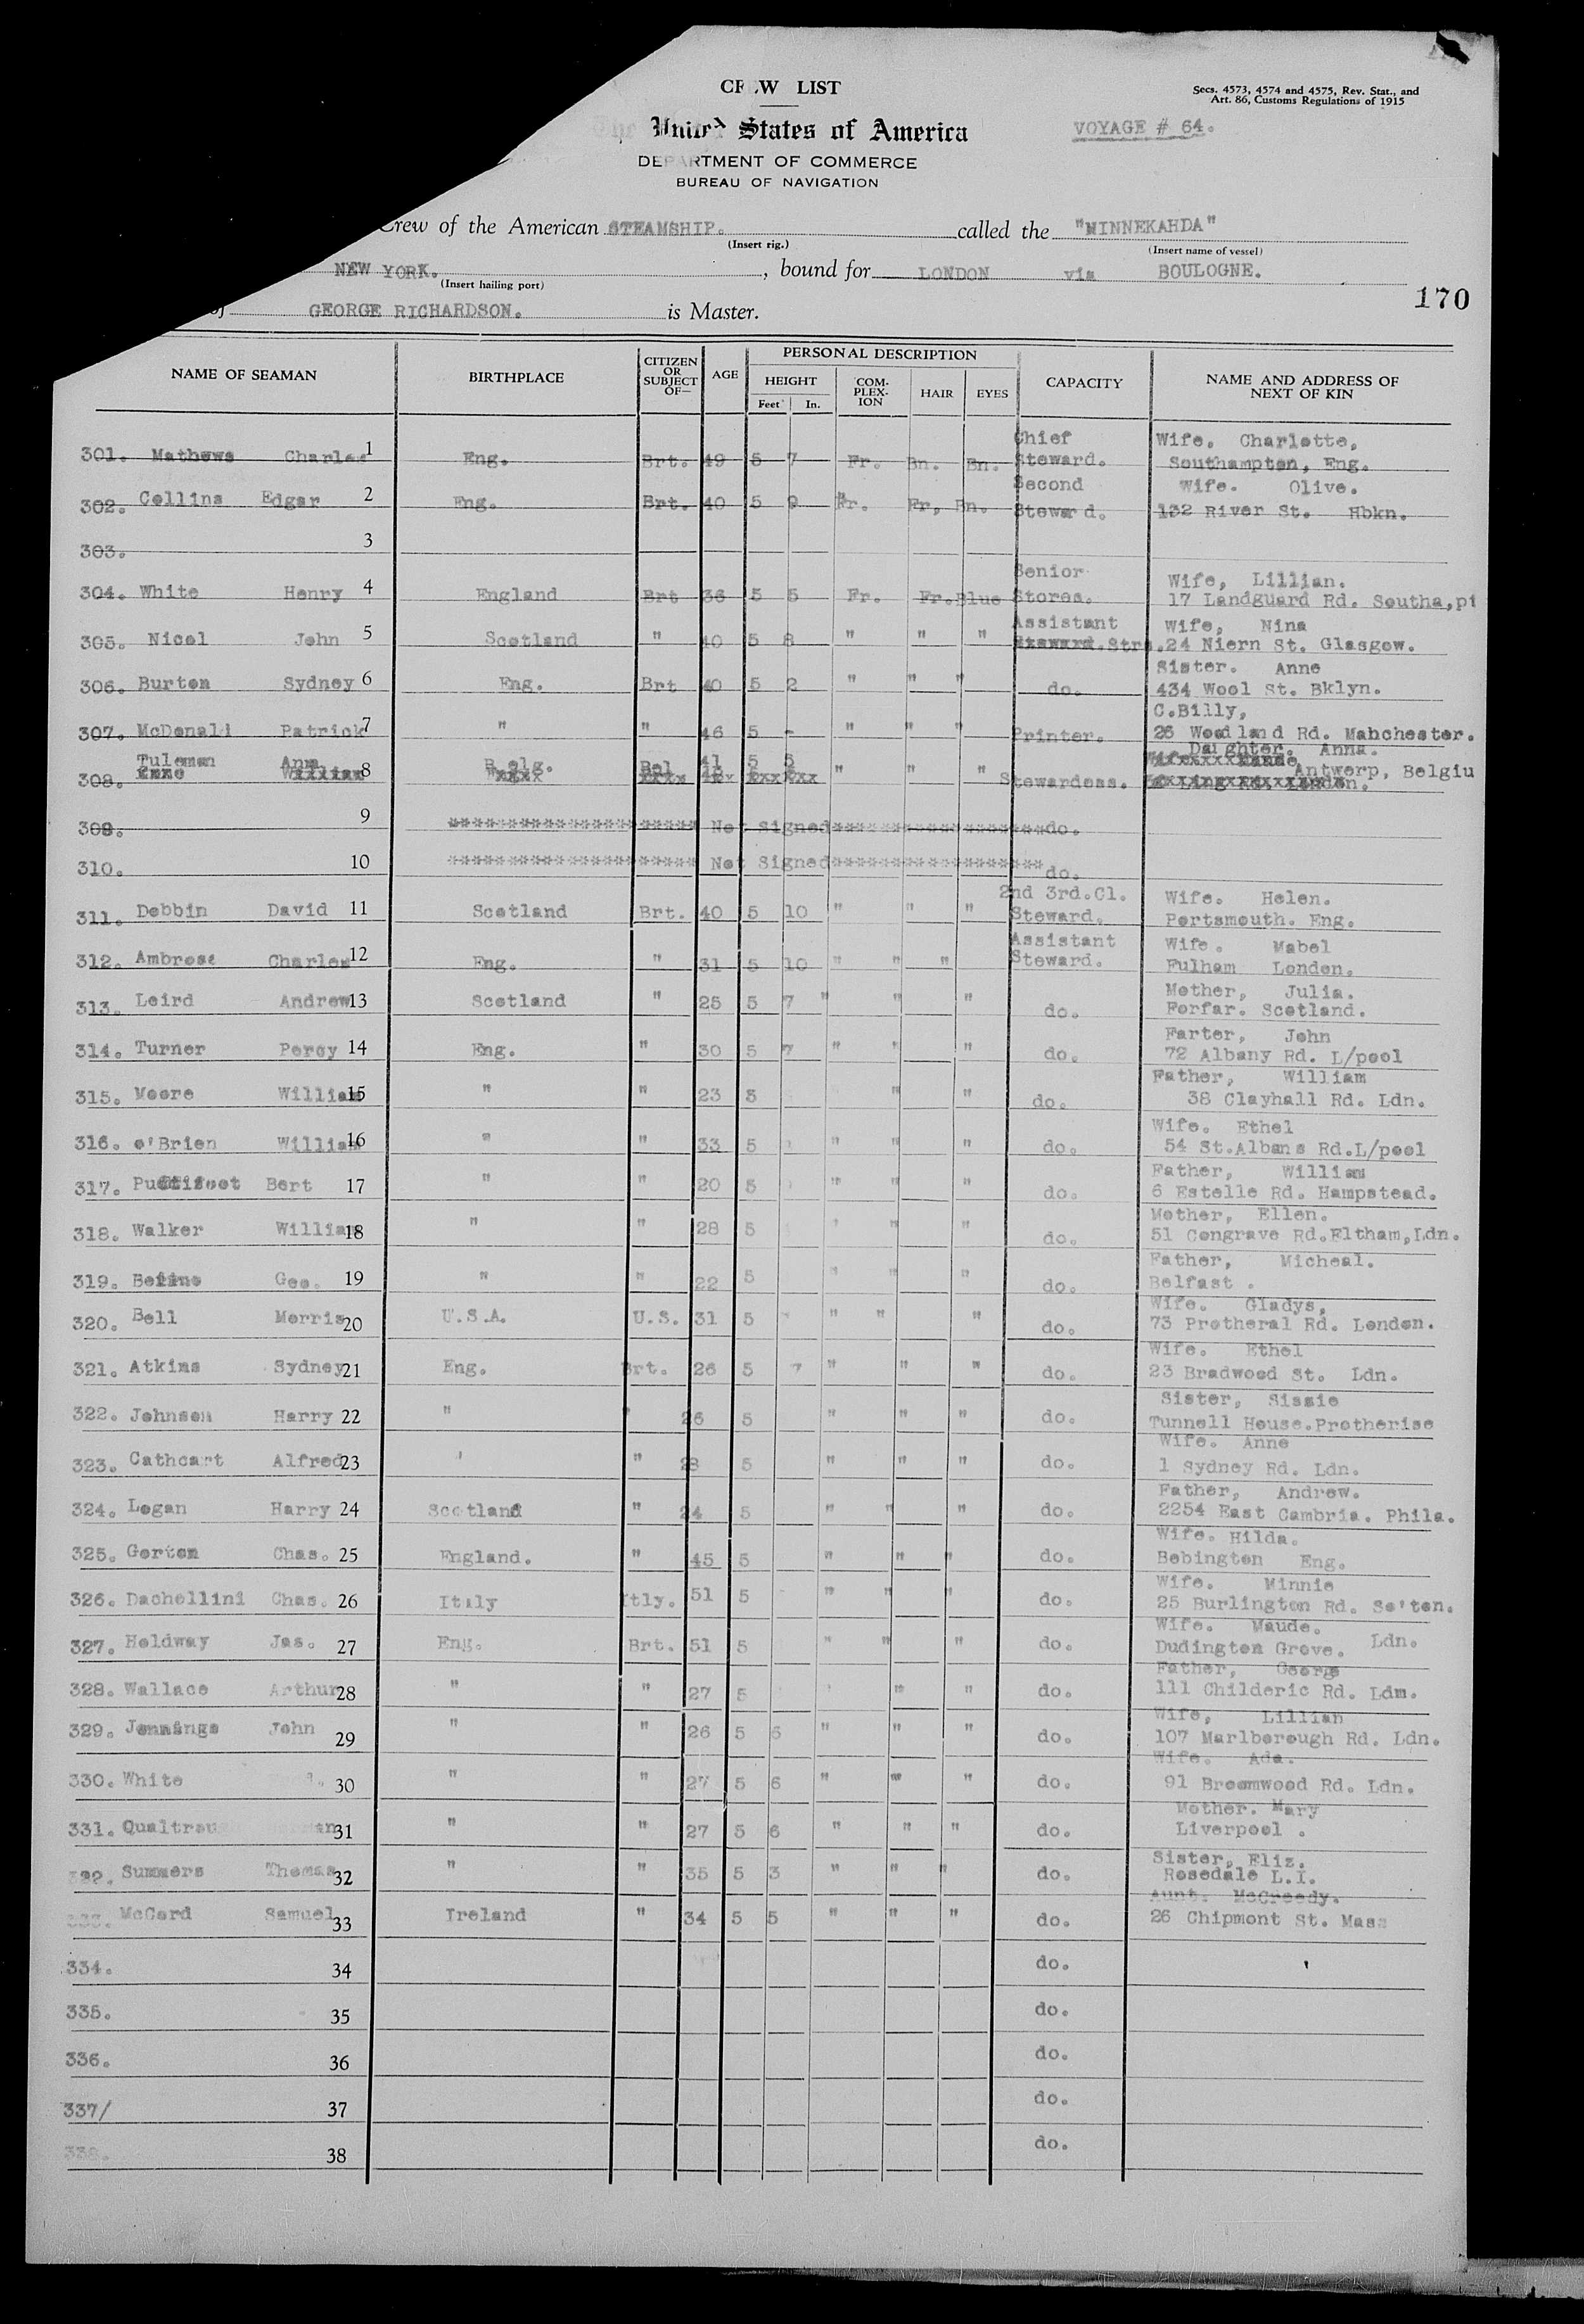 CREW LIST
Secs. 4573, 4574 and 4575, Rev. Stat., and
Art. 86, Customs Regulations of 1915
The United States of America
VOYAGE # 64.
DEPARTMENT OF COMMERCE
BUREAU OF NAVIGATION
Crew of the American STEAMSHIP. called the "MINNEKAHDA"
(Insert rig.) (Insert name of vessel)
NEW YORK. , bound for LONDON via BOULOGNE.
(Insert hailing port)
170
of GEORGE RICHARDSON. is Master.
NAME OF SEAMAN BIRTHPLACE CITIZEN OR SUBJECT OF— AGE PERSONAL DESCRIPTION CAPACITY NAME AND ADDRESS OF NEXT OF KIN
HEIGHT COM-PLEX-ION HAIR EYES
Feet In.
Chief Wife. Charlotte,
301. Mathews Charles 1 Eng. Brt. 49 5 7 Fr. Bn. Bn. Steward. Southampton, Eng.
Second Wife. Olive.
302. Collins Edgar 2 Eng. Brt. 40 5 9 Fr. Fr, Bn. Steward. 132 River St. Hbkn.
303. 3
Senior Wife, Lillian.
304. White Henry 4 England Brt 36 5 5 Fr. Fr. Blue Stores. 17 Landguard Rd. Southa,pt
Assistant Wife, Nina
305. Nicol John 5 Scotland " 40 5 8 " " " Strs. 24 Niern St. Glasgow.
Sister. Anne
306. Burton Sydney 6 Eng. Brt 40 5 2 " " " do. 434 Wool St. Bklyn.
C.Billy,
307. McDonald Patrick 7 " " 46 5 - " " " Printer. 26 Woodland Rd. Mahchester.
Tuleman Ann B elg. Bel 41 5 5 Daughter. Anna.
308. 8 " " " Stewardess. Antwerp, Belgiu
309. 9 ******************** Not Signed****************** do.
310. 10 ******************** Not Signed****************** do.
2nd 3rd.Cl. Wife. Helen.
311. Dobbin David 11 Scotland Brt. 40 5 10 " " " Steward. Portsmouth. Eng.
Assistant Wife. Mabel
312. Ambrose Charles 12 Eng. " 31 5 10 " " " Steward. Fulham London.
Mother, Julia.
313. Leird Andrew 13 Scotland " 25 5 7 " " " do. Forfar. Scotland.
Farter, John
314. Turner Percy 14 Eng. " 30 5 7 " " " do. 72 Albany Rd. L/pool
Father, William
315. Moore William 15 " " 23 5 " " do. 38 Clayhall Rd. Ldn.
Wife. Ethel
316. o'Brien William 16 " " 33 5 " " " do. 54 St.Albans Rd.L/pool
Father, William
317. Bert 17 " " 20 5 " " " do. 6 Estelle Rd. Hampstead.
Mother, Ellen.
318. Walker William 18 " " 28 5 " " " do. 51 Congrave Rd.Eltham,Ldn.
Father, Micheal.
319. Geo. 19 " " 22 5 " " " do. Belfast .
Wife. Gladys,
320. Bell Morris 20 U.S.A. U.S. 31 5 " " " do. 73 Protheral Rd. London.
Wife. Ethel
321. Atkins Sydney 21 Eng. Brt. 26 5 7 " " " do. 23 Bradwood St. Ldn.
Sister, Sissie
322. Johnson Harry 22 " " 26 5 " " " do. Tunnell House.Protherise
Wife. Anne
323. Cathcart Alfred 23 " " 28 5 " " " do. 1 Sydney Rd. Ldn.
Father, Andrew.
324. Logan Harry 24 Scotland " 24 5 " " " do. 2254 East Cambria. Phila.
Wife. Hilda.
325. Gorton Chas. 25 England. " 45 5 " " " do. Bebington Eng.
Wife. Minnie
326. Dachellini Chas. 26 Italy Itly. 51 5 " " " do. 25 Burlington Rd. So'ton.
Wife. Maude.
327. Holdway Jas. 27 Eng. Brt. 51 5 " " " do. Dudington Grove. Ldn.
Father, George
328. Wallace Arthur 28 " " 27 5 " " " do. 111 Childeric Rd. Ldm.
Wife, Lillian
329. Jennings John 29 " " 26 5 6 " " " do. 107 Marlborough Rd. Ldn.
Wife. Ada.
330. White 30 " " 27 5 6 " " " do. 91 Broomwood Rd. Ldn.
Mother. Mary
331. 31 " " 27 5 6 " " " do. Liverpool .
Sister, Eliz.
332. Summers Thomas 32 " " 35 5 3 " " " do. Rosedale L.I.
Aunt. McCreedy.
333. McCard Samuel 33 Ireland " 34 5 5 " " " do. 26 Chipmont St. Mass
334. 34 do.
335. 35 do.
336. 36 do.
337/ 37 do.
338. 38 do.